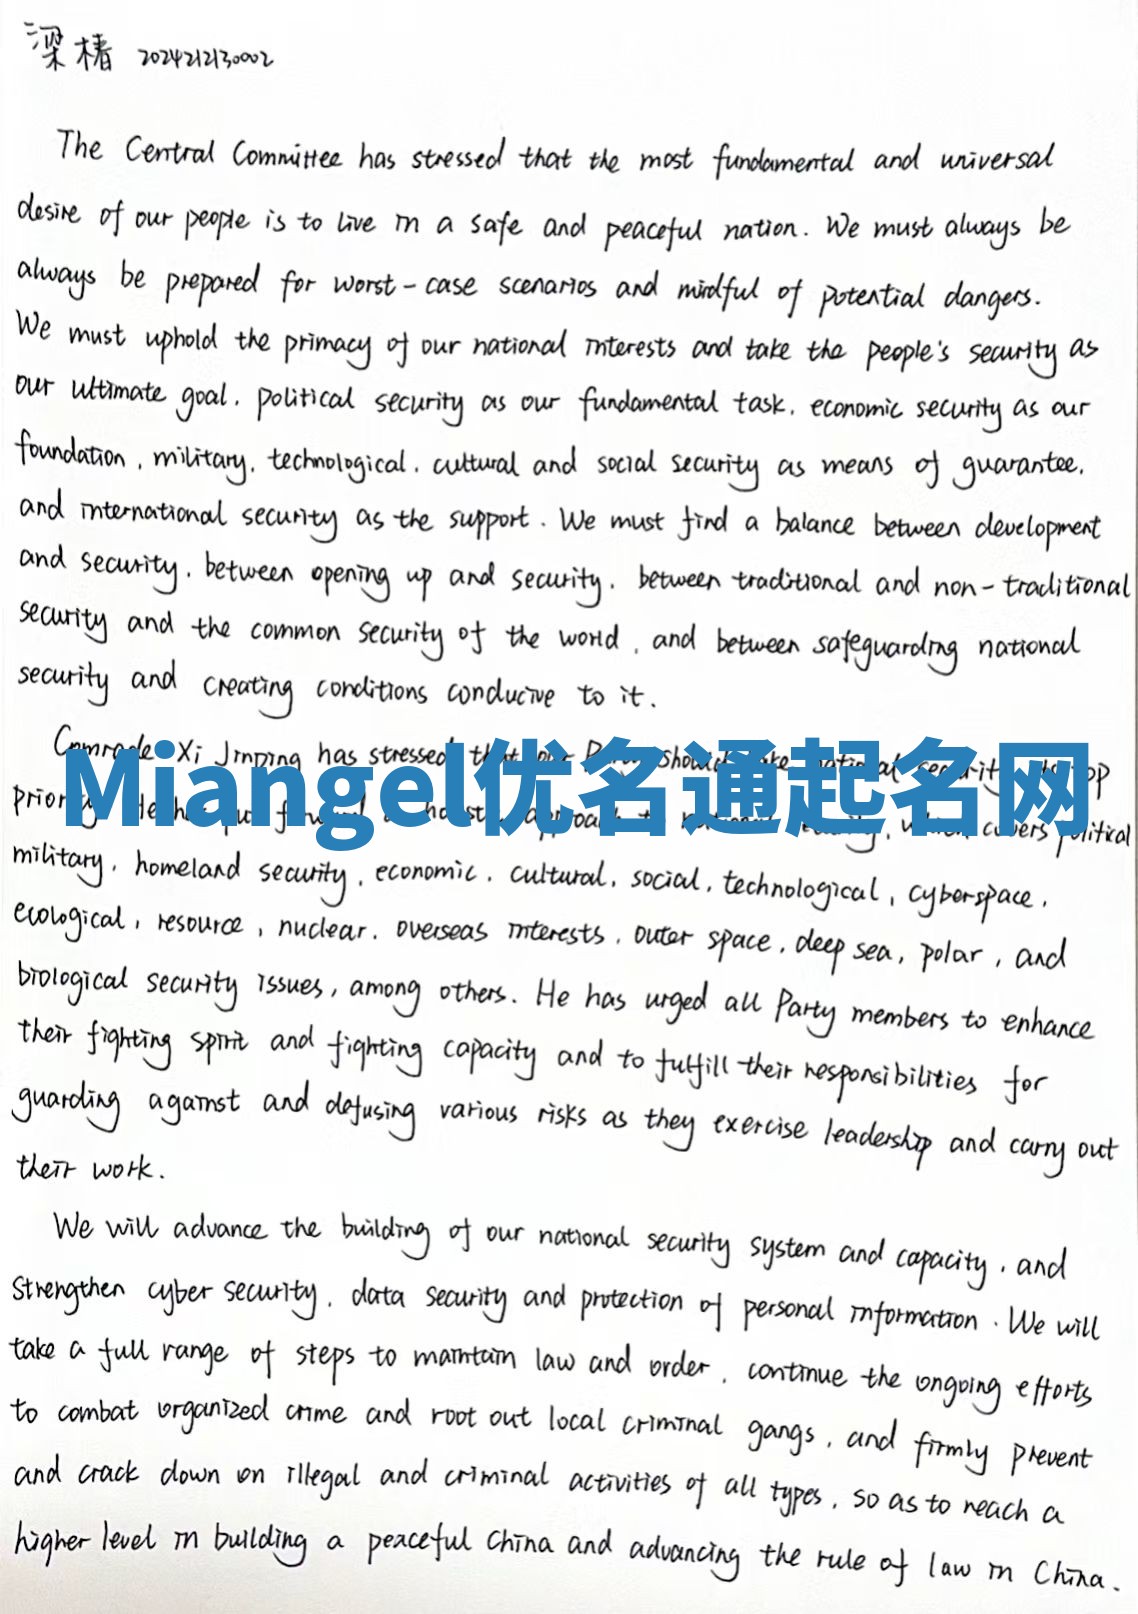 梁椿 2024212130002
The Central Committee has stressed that the most fundamental and universal
desire of our people is to live in a safe and peaceful nation. We must always be
always be prepared for worst-case scenarios and mindful of potential dangers.
We must uphold the primacy of our national interests and take the people's security as
our ultimate goal, political security as our fundamental task, economic security as our
foundation, military, technological, cultural and social security as means of guarantee,
and international security as the support. We must find a balance between development
and security, between opening up and security, between traditional and non-traditional
security and the common security of the world, and between safeguarding national
security and creating conditions conducive to it.
Comrade Xi Jinping has stressed that our Party should take national security its top
Miangel优名通起名网
covers political
military, homeland security, economic, cultural, social, technological, cyberspace,
ecological, resource, nuclear, overseas interests, outer space, deep sea, polar, and
biological security issues, among others. He has urged all Party members to enhance
their fighting spirit and fighting capacity and to fulfill their responsibilities for
guarding against and defusing various risks as they exercise leadership and carry out
their work.
We will advance the building of our national security system and capacity, and
strengthen cyber security, data security and protection of personal information. We will
take a full range of steps to maintain law and order, continue the ongoing efforts
to combat organized crime and root out local criminal gangs, and firmly prevent
and crack down on illegal and criminal activities of all types, so as to reach a
higher level in building a peaceful China and advancing the rule of law in China.